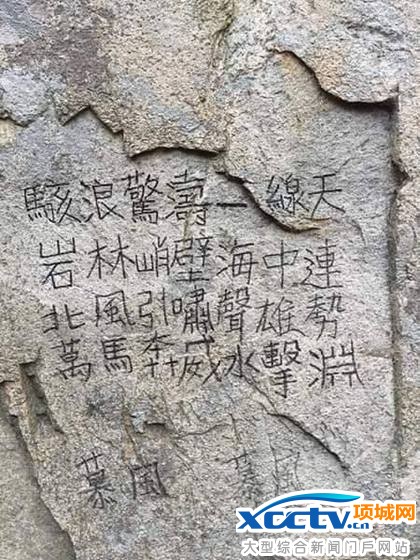 駭浪驚濤一線天
岩林峭壁海中連
北風引嘯聲雄勢
萬馬奔水擊淵
慕風
项城网
xcctv.cn
大型综合新闻门户网站